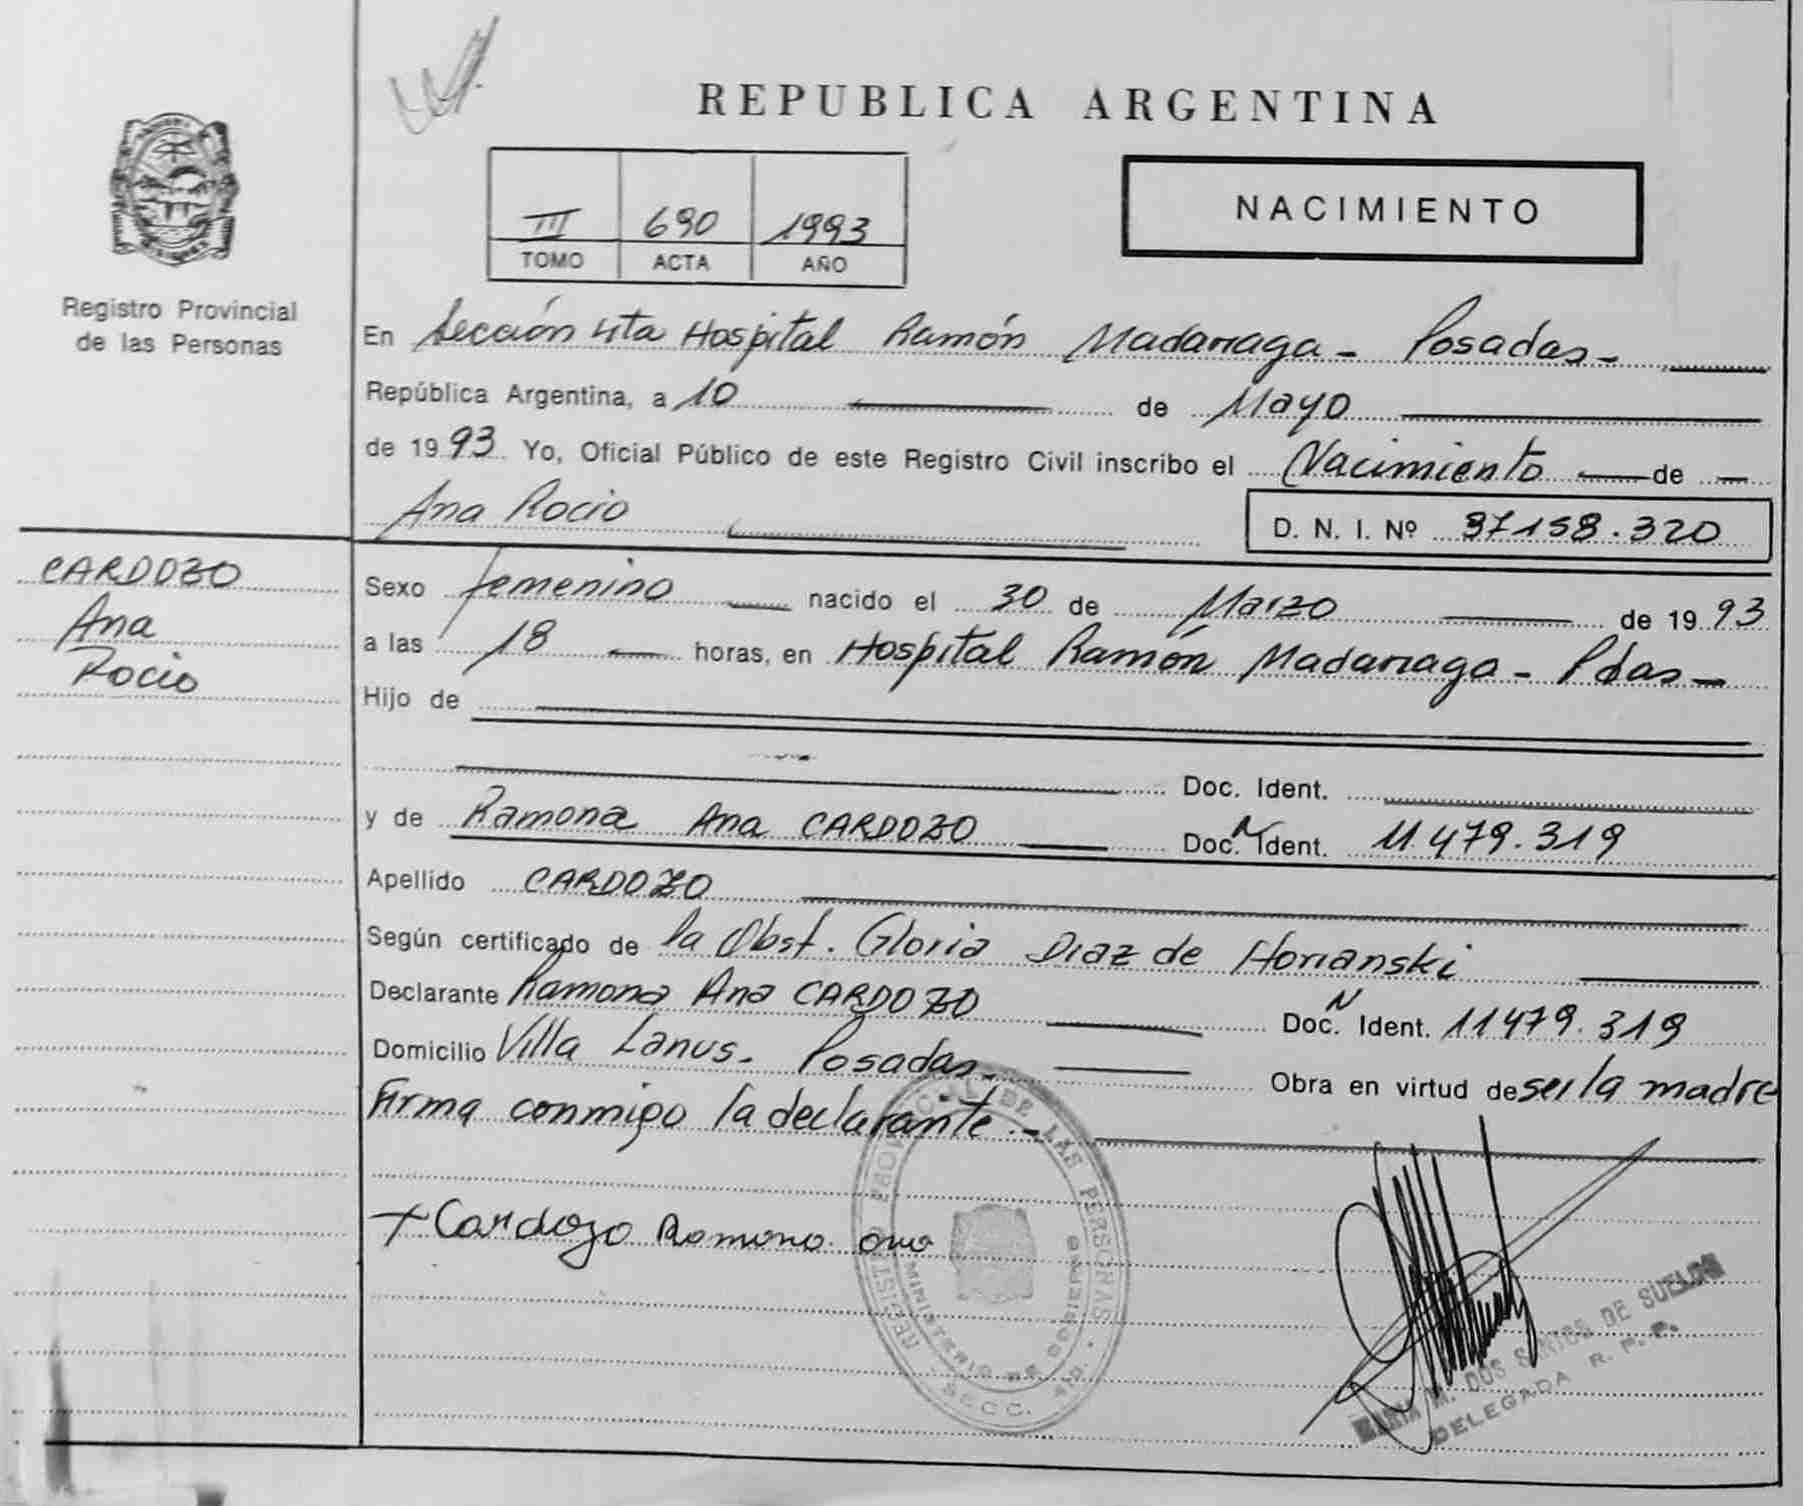 REPUBLICA ARGENTINA
NACIMIENTO
III 690 1993
TOMO ACTA AÑO
Registro Provincial
de las Personas
En Sección 4ta Hospital Ramón Madariaga - Posadas -
República Argentina, a 10 de Mayo
de 1993 Yo, Oficial Público de este Registro Civil inscribo el Nacimiento de
Ana Rocio
D. N. I. Nº 37158.320
CARDOZO
Ana
Rocio
Sexo femenino nacido el 30 de Marzo de 1993
a las 18 horas, en Hospital Ramón Madariaga - Pdas -
Hijo de
Doc. Ident.
y de Ramona Ana CARDOZO Doc. N Ident. 11.479.319
Apellido CARDOZO
Según certificado de la Obst. Gloria Diaz de Horianski
Declarante Ramona Ana CARDOZO Doc. N Ident. 11479.319
Domicilio Villa Lanus - Posadas - Obra en virtud de ser la madre
Firma conmigo la declarante.-
+ Cardozo Ramona ana
REGISTRO PROVINCIAL DE LAS PERSONAS
MINISTERIO DE GOBIERNO
SECC. 4ta.
MARIA M. DOS SANTOS DE SUELDO
DELEGADA R. P. P.